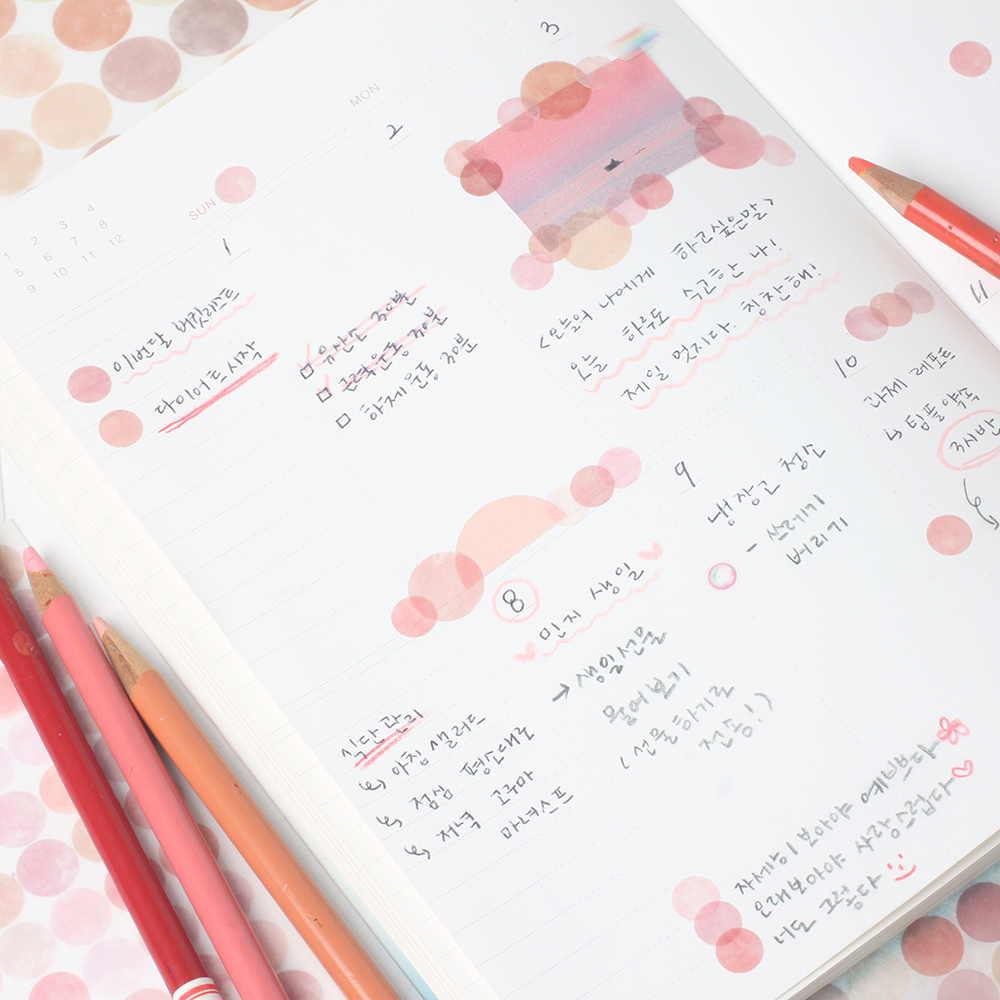 1 2 3 4
5 6 7 8
9 10 11 12
SUN
MON
1
2
3
이번달 버킷리스트
다이어트 시작
유산소 30분
근력운동 30분
하체운동 30분
<오늘의 나에게 하고싶은말>
오늘 하루도 수고한 나!
제일 멋지다. 칭찬해!
8
민지 생일
→ 생일선물
물어보기
(선물하기로
전송!)
9
냉장고 청소
- 쓰레기
버리기
10
과제 레포트
↳ 팀플 약속
11
식단관리
↳ 아침 샐러드
↳ 점심 평소대로
↳ 저녁 고구마
마녀스프
자세히 보아야 예쁘다
오래보아야 사랑스럽다
너도 그렇다